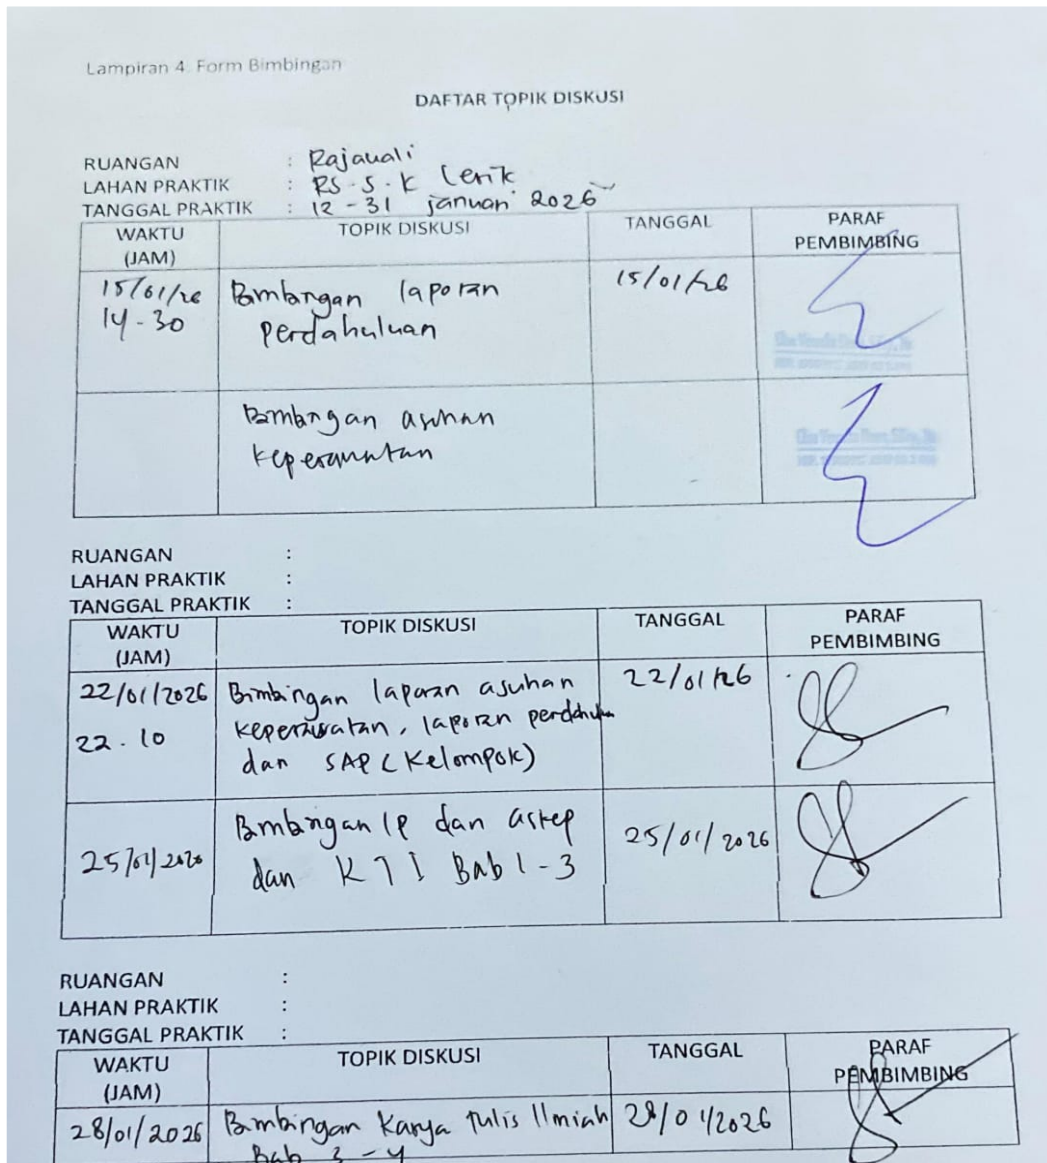 Lampiran 4. Form Bimbingan
DAFTAR TOPIK DISKUSI
RUANGAN : Rajawali
LAHAN PRAKTIK : RS. S. K Lerik
TANGGAL PRAKTIK : 12 - 31 januari 2026
WAKTU (JAM) TOPIK DISKUSI TANGGAL PARAF PEMBIMBING
15/01/26 Bimbingan laporan 15/01/26
14-30 Perdahuluan
Bimbingan asuhan
keperawatan
RUANGAN :
LAHAN PRAKTIK :
TANGGAL PRAKTIK :
WAKTU (JAM) TOPIK DISKUSI TANGGAL PARAF PEMBIMBING
22/01/2026 Bimbingan laporan asuhan 22/01/26
22.10 keperawatan, laporan perdahulu
dan SAP (Kelompok)
Bimbingan lp dan askep
25/01/2026 dan KTI Bab 1-3 25/01/2026
RUANGAN :
LAHAN PRAKTIK :
TANGGAL PRAKTIK :
WAKTU (JAM) TOPIK DISKUSI TANGGAL PARAF PEMBIMBING
28/01/2026 Bimbingan Karya tulis Ilmiah 28/01/2026
Bab 3-4